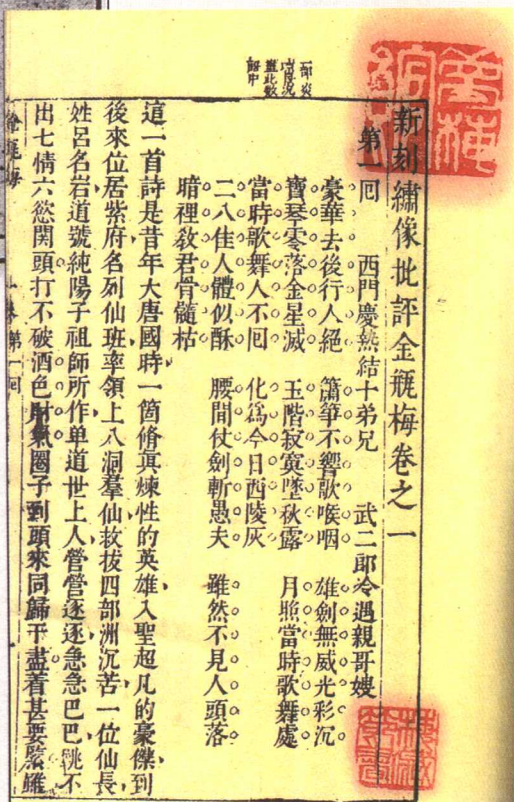 一部炎
涼景況
盡此數
語中
新刻繡像批評金瓶梅卷之一
第一回 西門慶熱結十弟兄 武二郎冷遇親哥嫂
豪華去後行人絕 簫箏不響歌喉咽 雄劍無威光彩沉
寶琴零落金星滅 玉階寂寞墜秋露 月照當時歌舞處
當時歌舞人不回 化爲今日西陵灰
二八佳人體似酥 腰間仗劍斬愚夫 雖然不見人頭落
暗裡教君骨髓枯
這一首詩是昔年大唐國時一箇脩真煉性的英雄入聖超凡的豪傑到
後來位居紫府名列仙班率領上八洞羣仙救拔四部洲沉苦一位仙長
姓呂名岩道號純陽子祖師所作单道世上人營營逐逐急急巴巴跳不
出七情六慾関頭打不破酒色財氣圈子到頭來同歸于盡着甚要緊雖
瓶梅 第一回